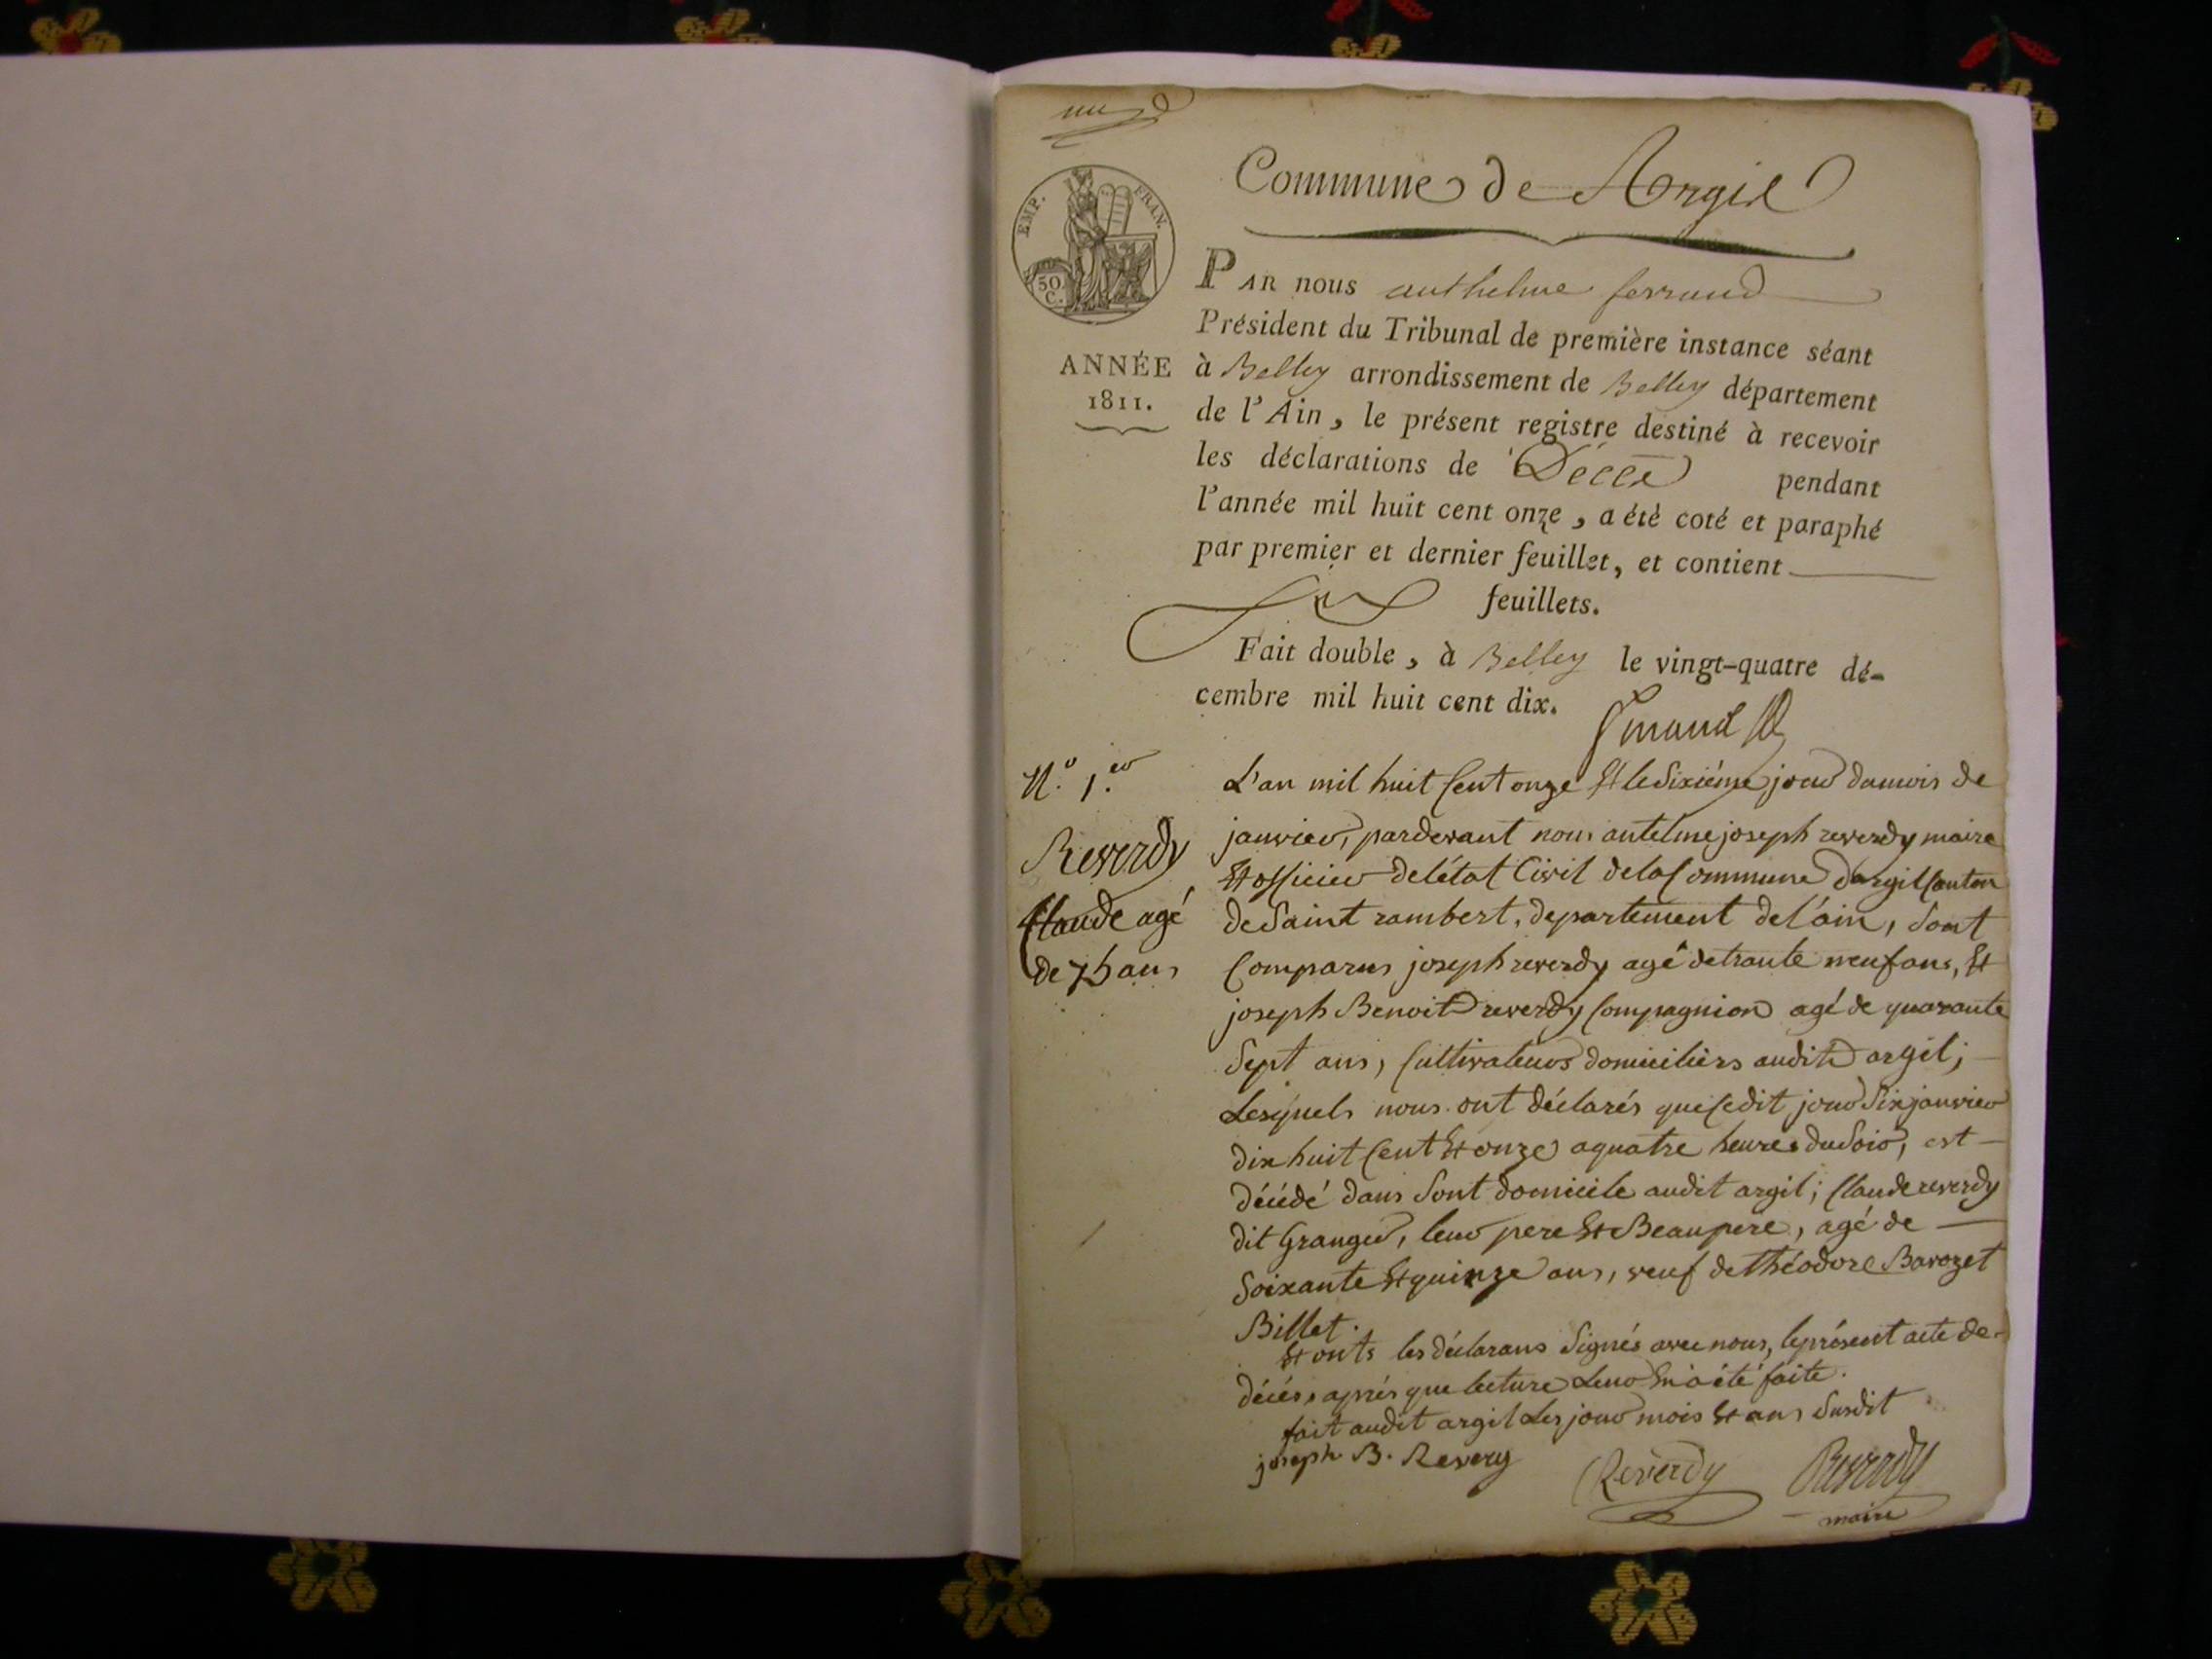 Commune de Argil
EMP. FRAN.
50
C.
ANNÉE
1811.
PAR nous anthelme ferrand
Président du Tribunal de première instance séant
à Belley arrondissement de Belley département
de l'Ain, le présent registre destiné à recevoir
les déclarations de Décès pendant
l'année mil huit cent onze, a été coté et paraphé
par premier et dernier feuillet, et contient
six feuillets.
Fait double, à Belley le vingt-quatre dé-
cembre mil huit cent dix.
N.o 1.er
Reverdy
Claude agé
de 75 ans
L'an mil huit Cent onze Et le Sixiéme jour du mois de
janvier, pardevant nous antelme joseph reverdy maire
Et officier de l'état Civil de la Commune d'argil Canton
de Saint rambert, departement de l'ain, Sont
Comparus joseph reverdy agé de trante neuf ans, Et
joseph Benoit reverdy Compagnion agé de quarante
Sept ans, Cultivateurs domiciliers audit argil;
Lesquels nous ont déclarés que Cedit jour Six janvier
dix huit Cent Et onze a quatre heures du Soir, est
décédé dans Sont domicile audit argil; Claude reverdy
dit Granger, leur pere Et Beaupere, agé de
Soixante Et quinze ans, veuf de théodore Barozet
Billet.
Et onts les déclarans Signés avec nous, le présent acte de
décés, aprés que lecture Leur En à été faite.
fait audit argil Les jour mois Et ans Susdit
joseph B. Revery Reverdy Reverdy
maire